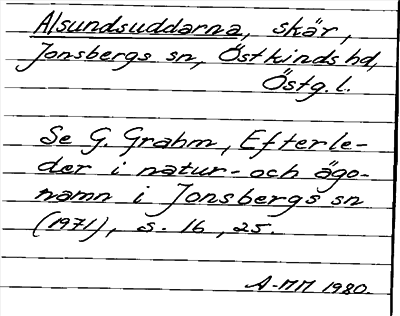 Alsundsuddarna, skär,
Jonsbergs sn, Östkinds hd,
Östg. l.
Se G. Grahm, Efterle-
der i natur- och ägo-
namn i Jonsbergs sn
(1971), s. 16, 25.
A-MM 1980.